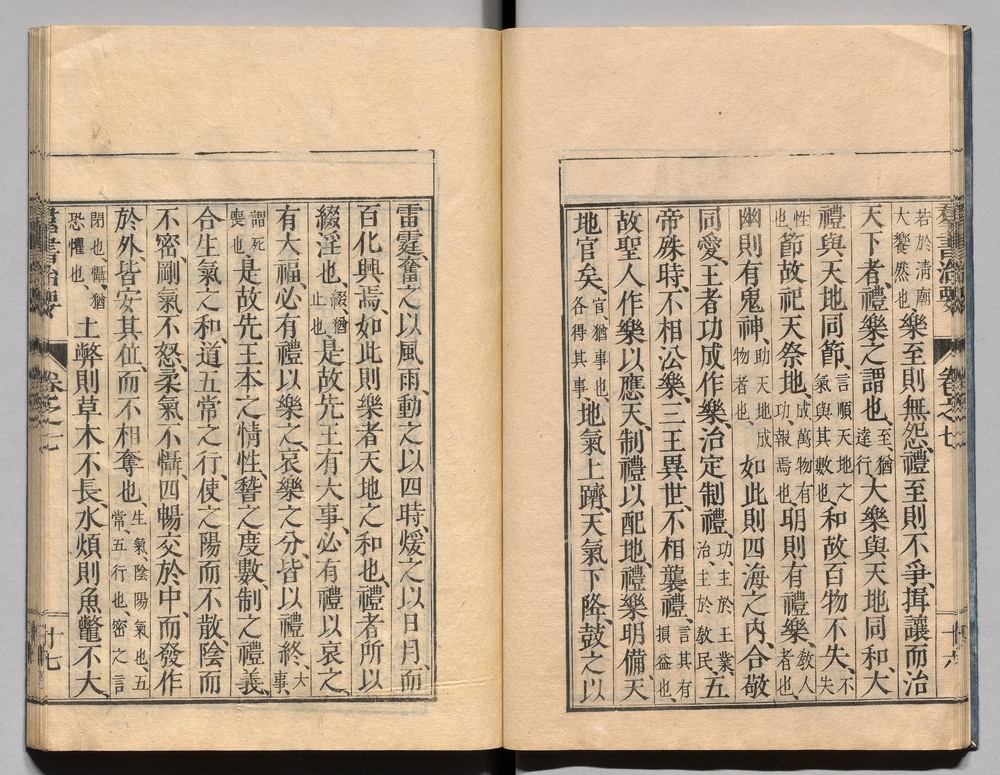 羣書治要
卷之七
十六
若於清廟大饗然也樂至則無怨、禮至則不爭、揖讓而治
天下者、禮樂之謂也、至、猶達行、大樂與天地同和、大
禮與天地同節、言順天地之氣與其數也、和故百物不失、不失
性也、節故祀天祭地、成萬物有功、報焉也、明則有禮樂、敎人者也、
幽則有鬼神、助天地成物者也、如此則四海之內、合敬
同愛、王者功成作樂、治定制禮、功、主於王業、治、主於敎民、五
帝殊時、不相㳂樂、三王異世、不相襲禮、言其有損益也、
故聖人作樂以應天、制禮以配地、禮樂明備、天
地官矣、官、猶事也、各得其事、地氣上躋、天氣下降、鼓之以
雷霆、奮之以風雨、動之以四時、煖之以日月、而
百化興焉、如此則樂者天地之和也、禮者所以
綴淫也、綴、猶止也、是故先王有大事、必有禮以哀之、
有大福、必有禮以樂之、哀樂之分、皆以禮終、大事、
謂死喪也、是故先王本之情性、稽之度數、制之禮義、
合生氣之和、道五常之行、使之陽而不散、陰而
不密、剛氣不怒、柔氣不懾、四暢交於中、而發作
於外、皆安其位、而不相奪也、生氣、陰陽氣也、五常、五行也、密之言
閉也、懾、猶恐懼也、土弊則草木不長、水煩則魚鼈不大、
羣書治要
卷之七
十七